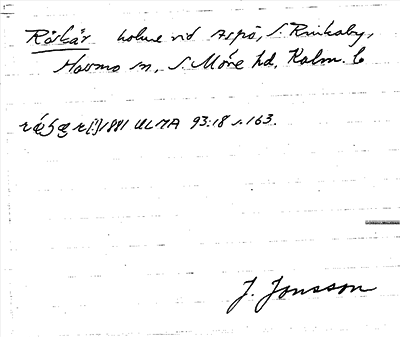 Råskär holme vid Aspö, S. Rinkaby,
Hossmo sn, S. Möre hd, Kalm. l.
1881 ULMA 93:18 s. 163.
J. Jonsson